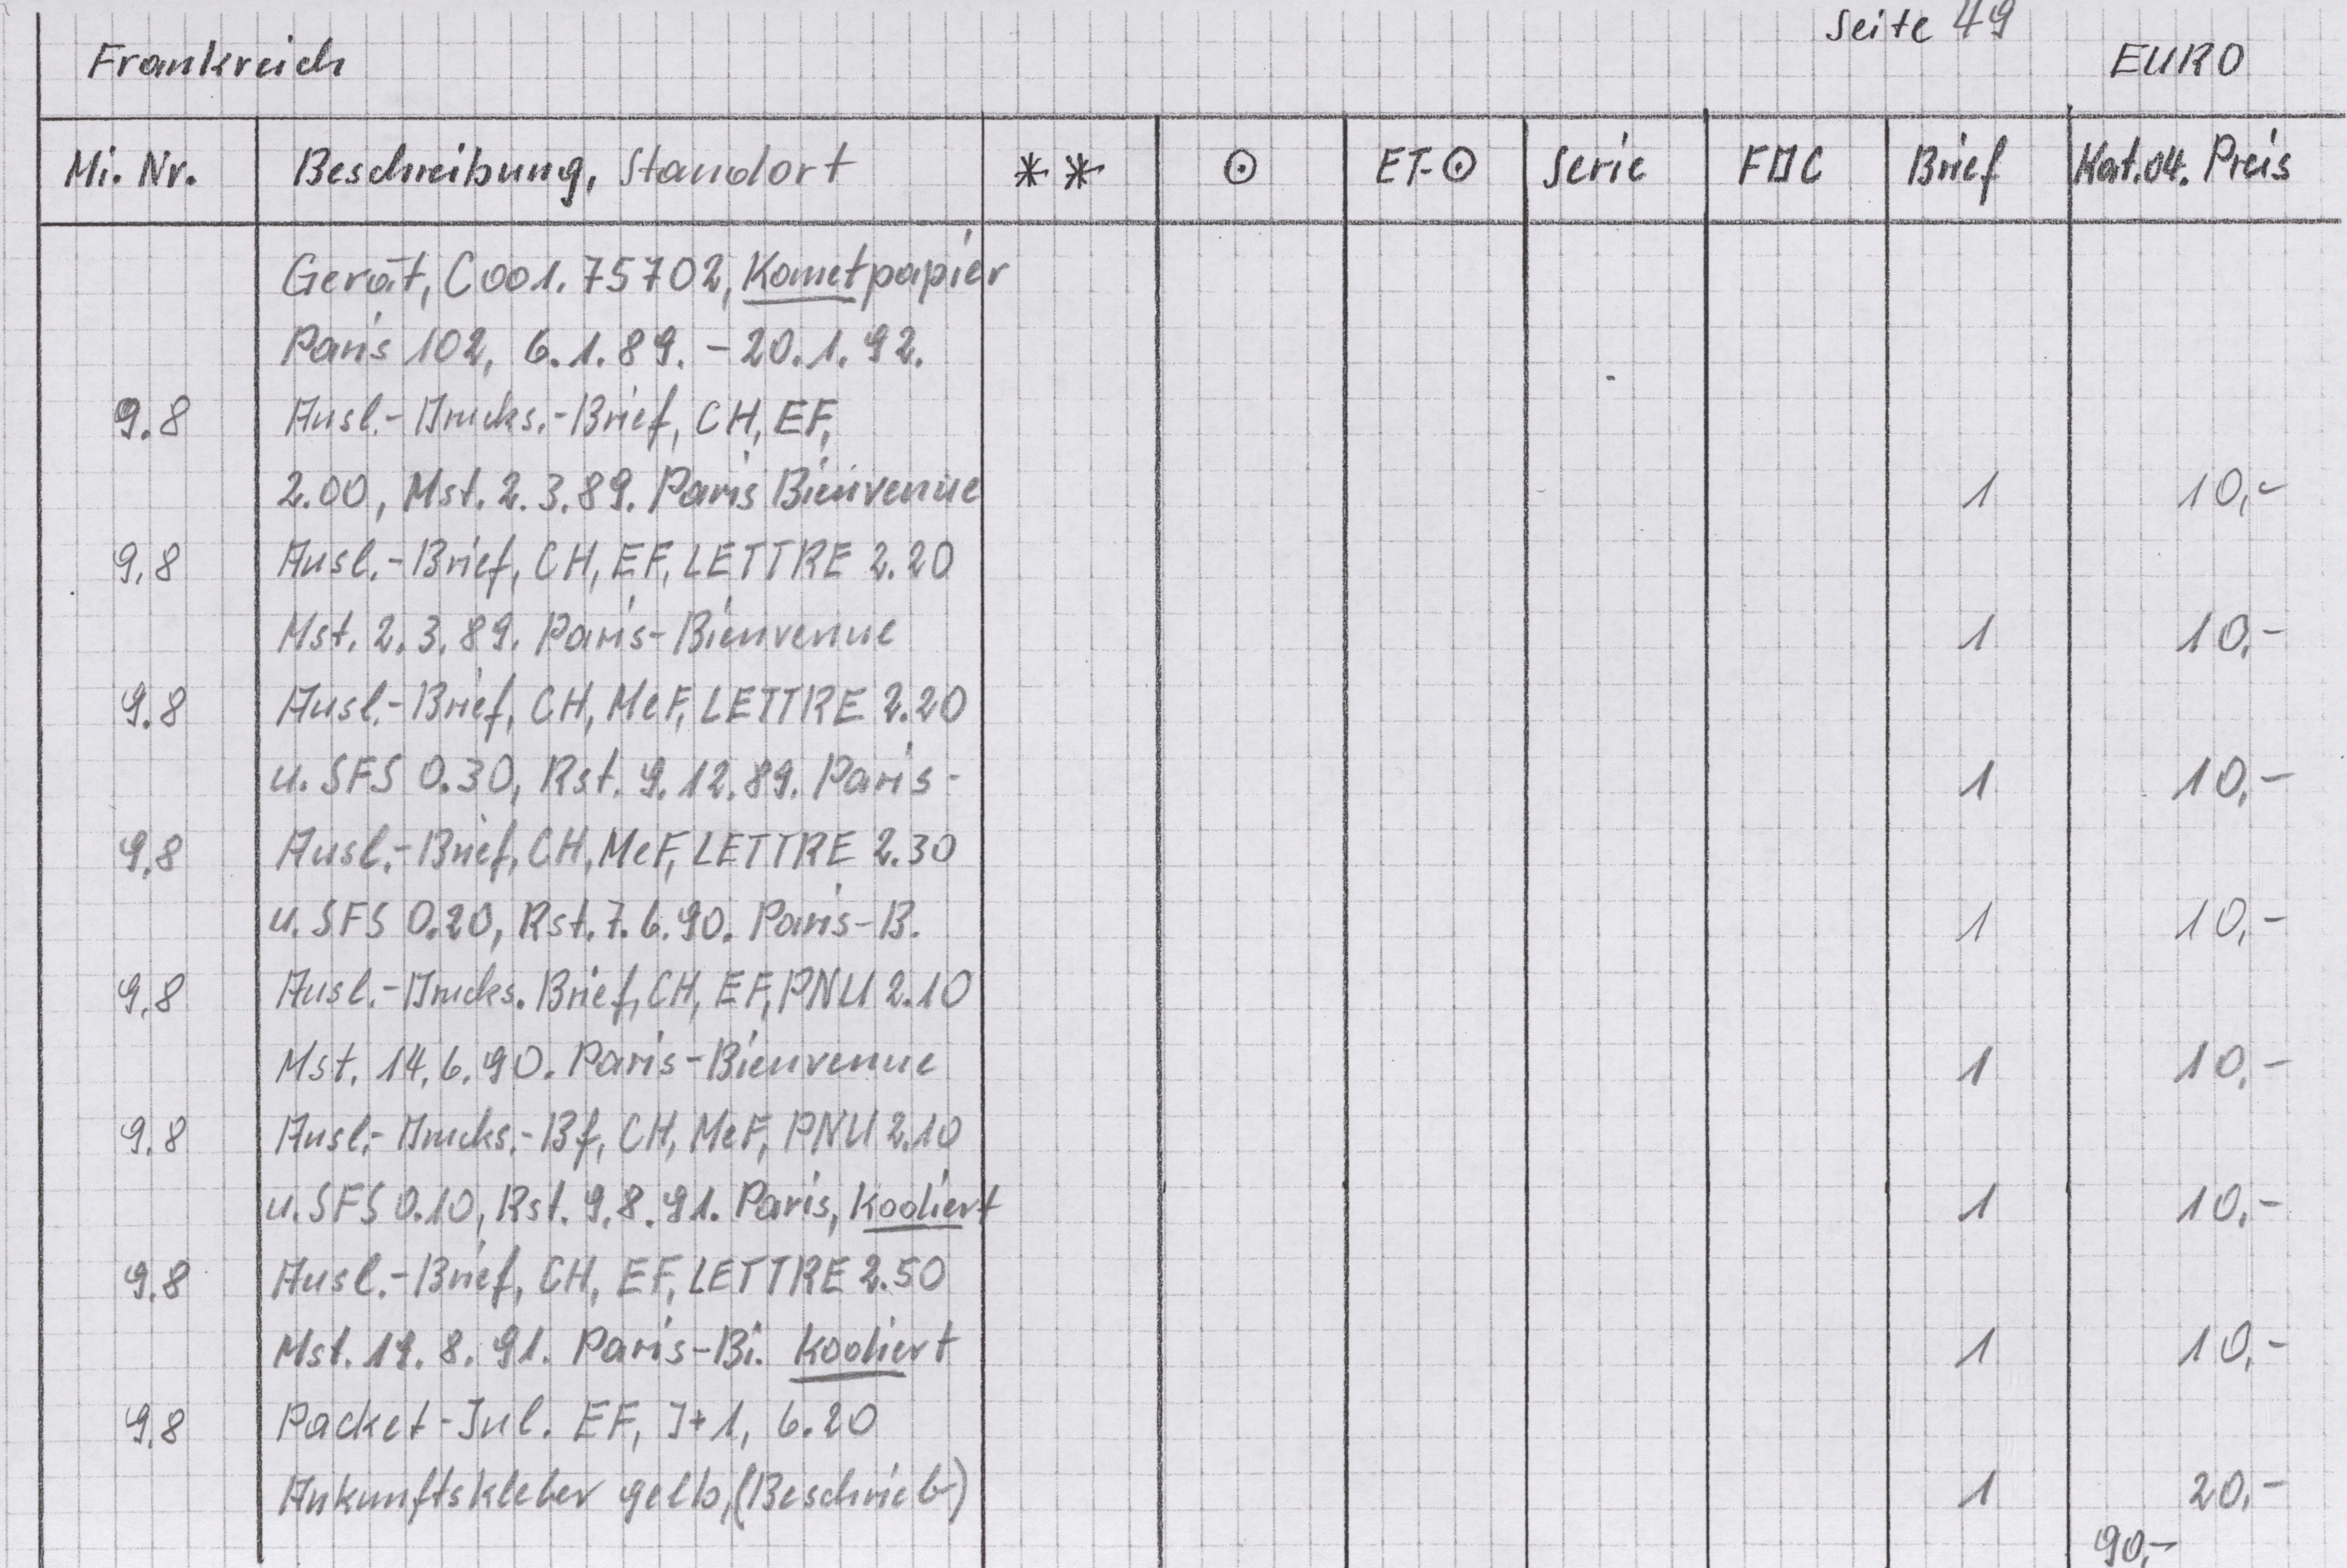 Seite 49
Frankreich EURO
Mi. Nr. Beschreibung, Standort ** ⊙ ET-⊙ Serie FDC Brief Kat.04. Preis
Gerät, C001.75702, Kometpapier
Paris 102, 6.1.89. - 20.1.92.
9.8 Ausl.-Drucks.-Brief, CH, EF,
2.00, Mst. 2.3.89. Paris Bienvenue 1 10,-
9.8 Ausl.-Brief, CH, EF, LETTRE 2.20
Mst. 2.3.89. Paris-Bienvenue 1 10,-
9.8 Ausl.-Brief, CH, MeF, LETTRE 2.20
u. SFS 0.30, Rst. 9.12.89. Paris- 1 10,-
9.8 Ausl.-Brief, CH, MeF, LETTRE 2.30
u. SFS 0.20, Rst. 7.6.90. Paris-B. 1 10,-
9.8 Ausl.-Drucks. Brief, CH, EF, PNU 2.10
Mst. 14.6.90. Paris-Bienvenue 1 10,-
9.8 Ausl.-Drucks.-Bf, CH, MeF, PNU 2.10
u. SFS 0.10, Rst. 9.8.91. Paris, Kodiert 1 10,-
9.8 Ausl.-Brief, CH, EF, LETTRE 2.50
Mst. 19.8.91. Paris-Bi. Kodiert 1 10,-
9.8 Packet-Inl. EF, J+1, 6.20
Ankunftskleber gelb, (Beschrieb) 1 20,-
90,-